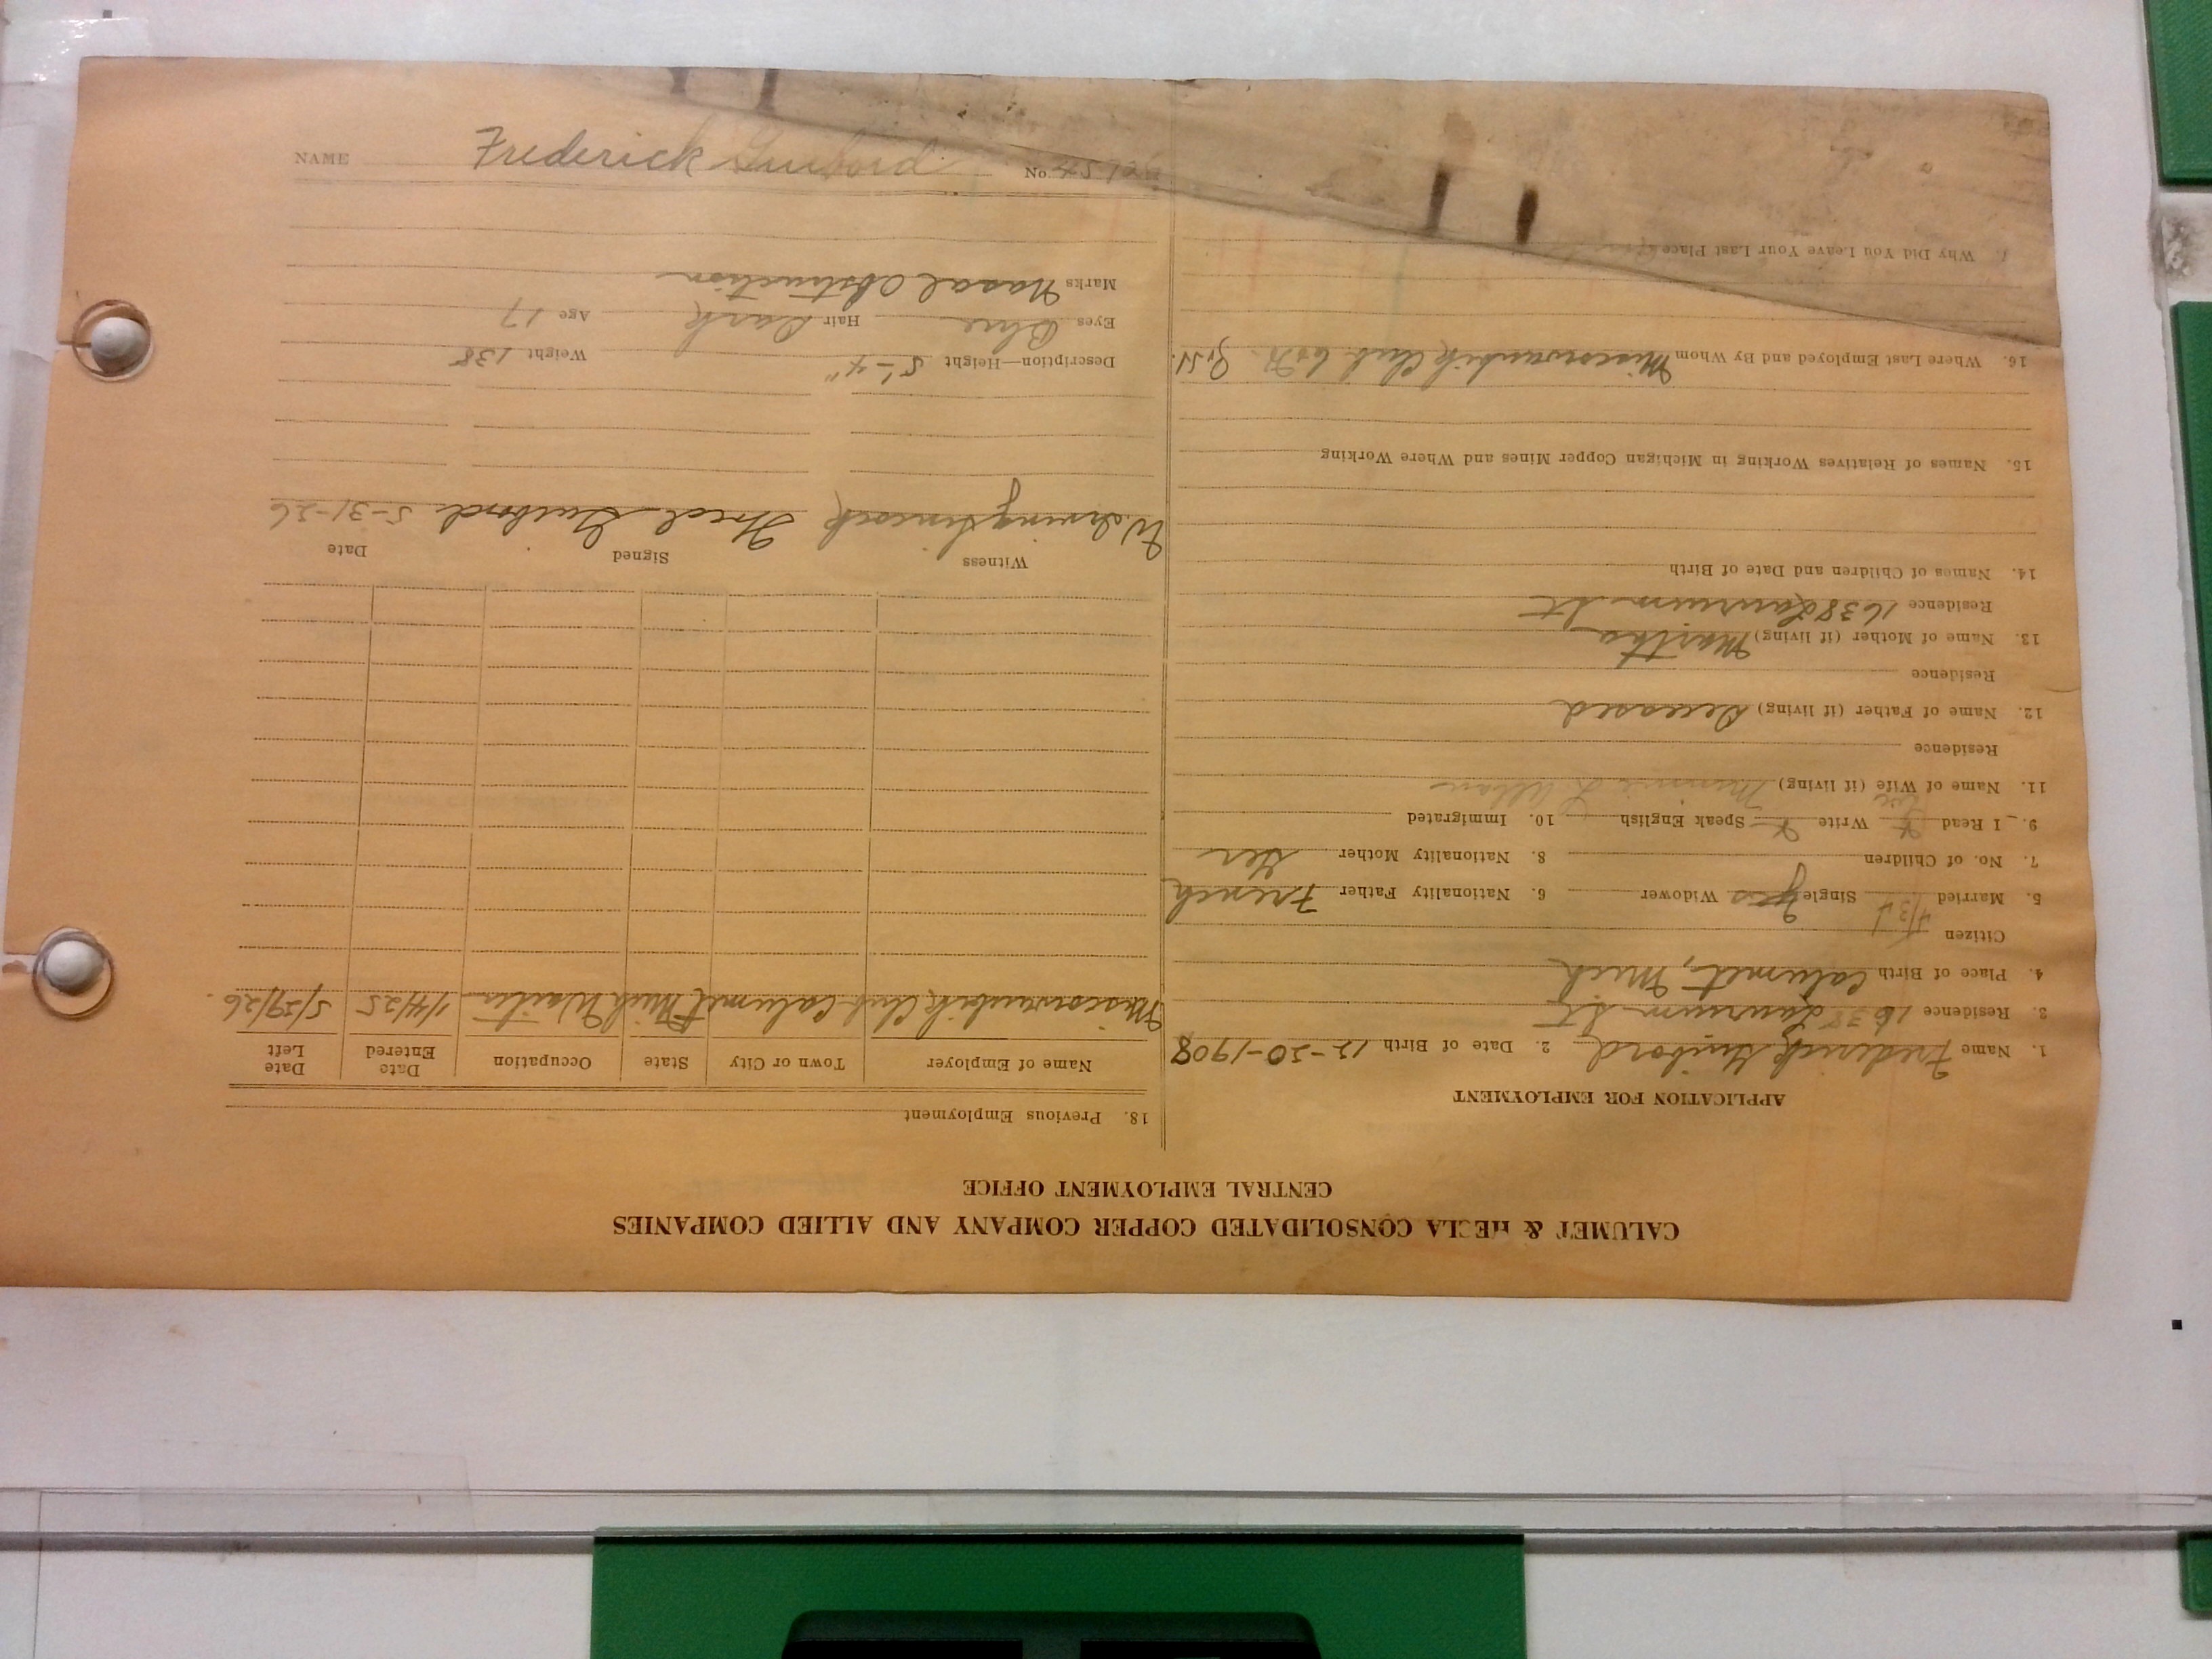 CALUMET & HECLA CONSOLIDATED COPPER COMPANY AND ALLIED COMPANIES
CENTRAL EMPLOYMENT OFFICE
APPLICATION FOR EMPLOYMENT
1. Name Frederick Guibord 2. Date of Birth 12-30-1908
3. Residence 1638 Laurium St
4. Place of Birth Calumet, Mich
Citizen
5. Married Single yes Widower 6. Nationality Father French
7. No. of Children 8. Nationality Mother Ger
9. I Read Write Speak English 10. Immigrated
11. Name of Wife (if living)
Residence
12. Name of Father (if living) Deceased
Residence
13. Name of Mother (if living) Martha
Residence 1638 Laurium St
14. Names of Children and Date of Birth
15. Names of Relatives Working in Michigan Copper Mines and Where Working
16. Where Last Employed and By Whom Miscowaubik Club
Why Did You Leave Your Last Place
18. Previous Employment
Name of Employer Town or City State Occupation Date Entered Date Left
Miscowaubik Club Calumet Mich Waiter 1/4/25 5/29/26
Witness Signed Date
W. Irving Fred Guibord 5-31-26
Description—Height 5'-4" Weight 138
Eyes Blue Hair Dark Age 17
Marks Nasal Obstruction
NAME Frederick Guibord No.